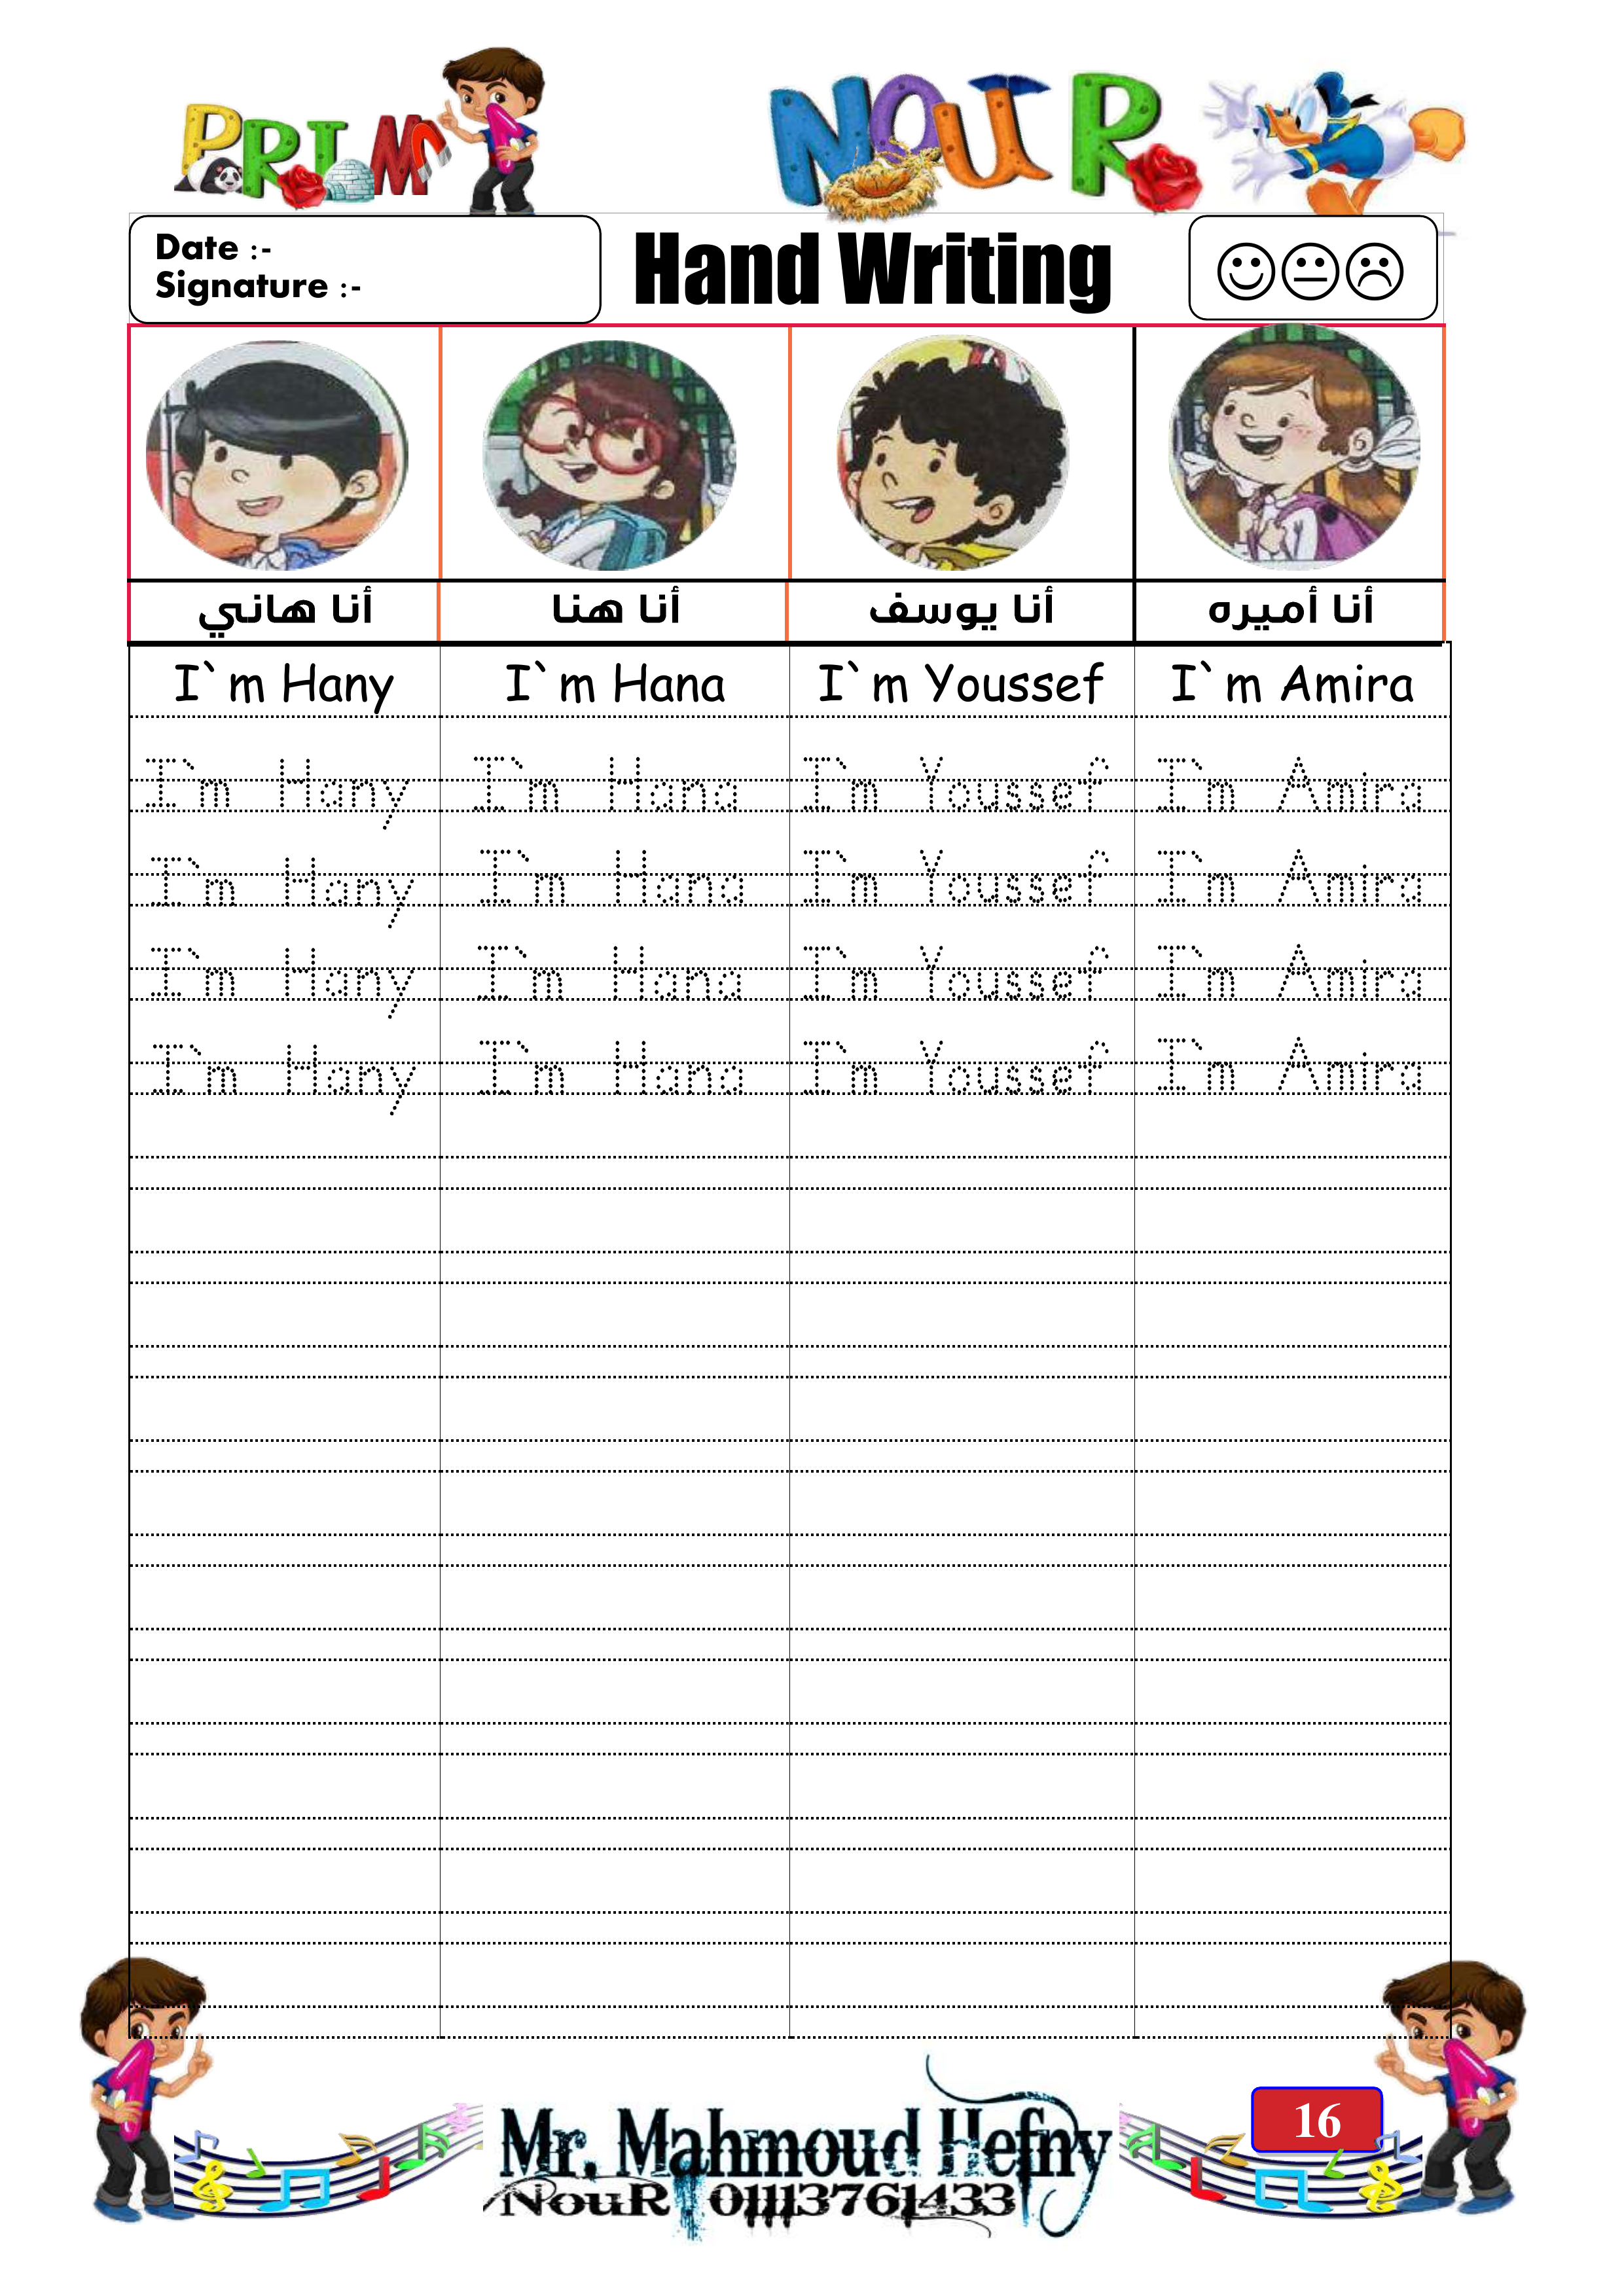 PRIM 1
NOUR
Date :-
Signature :-
Hand Writing
أنا هاني أنا هنا أنا يوسف أنا أميره
I`m Hany I`m Hana I`m Youssef I`m Amira
I`m Hany I`m Hana I`m Youssef I`m Amira
I`m Hany I`m Hana I`m Youssef I`m Amira
I`m Hany I`m Hana I`m Youssef I`m Amira
I`m Hany I`m Hana I`m Youssef I`m Amira
Mr. Mahmoud Hefny
NouR 01113761433
16